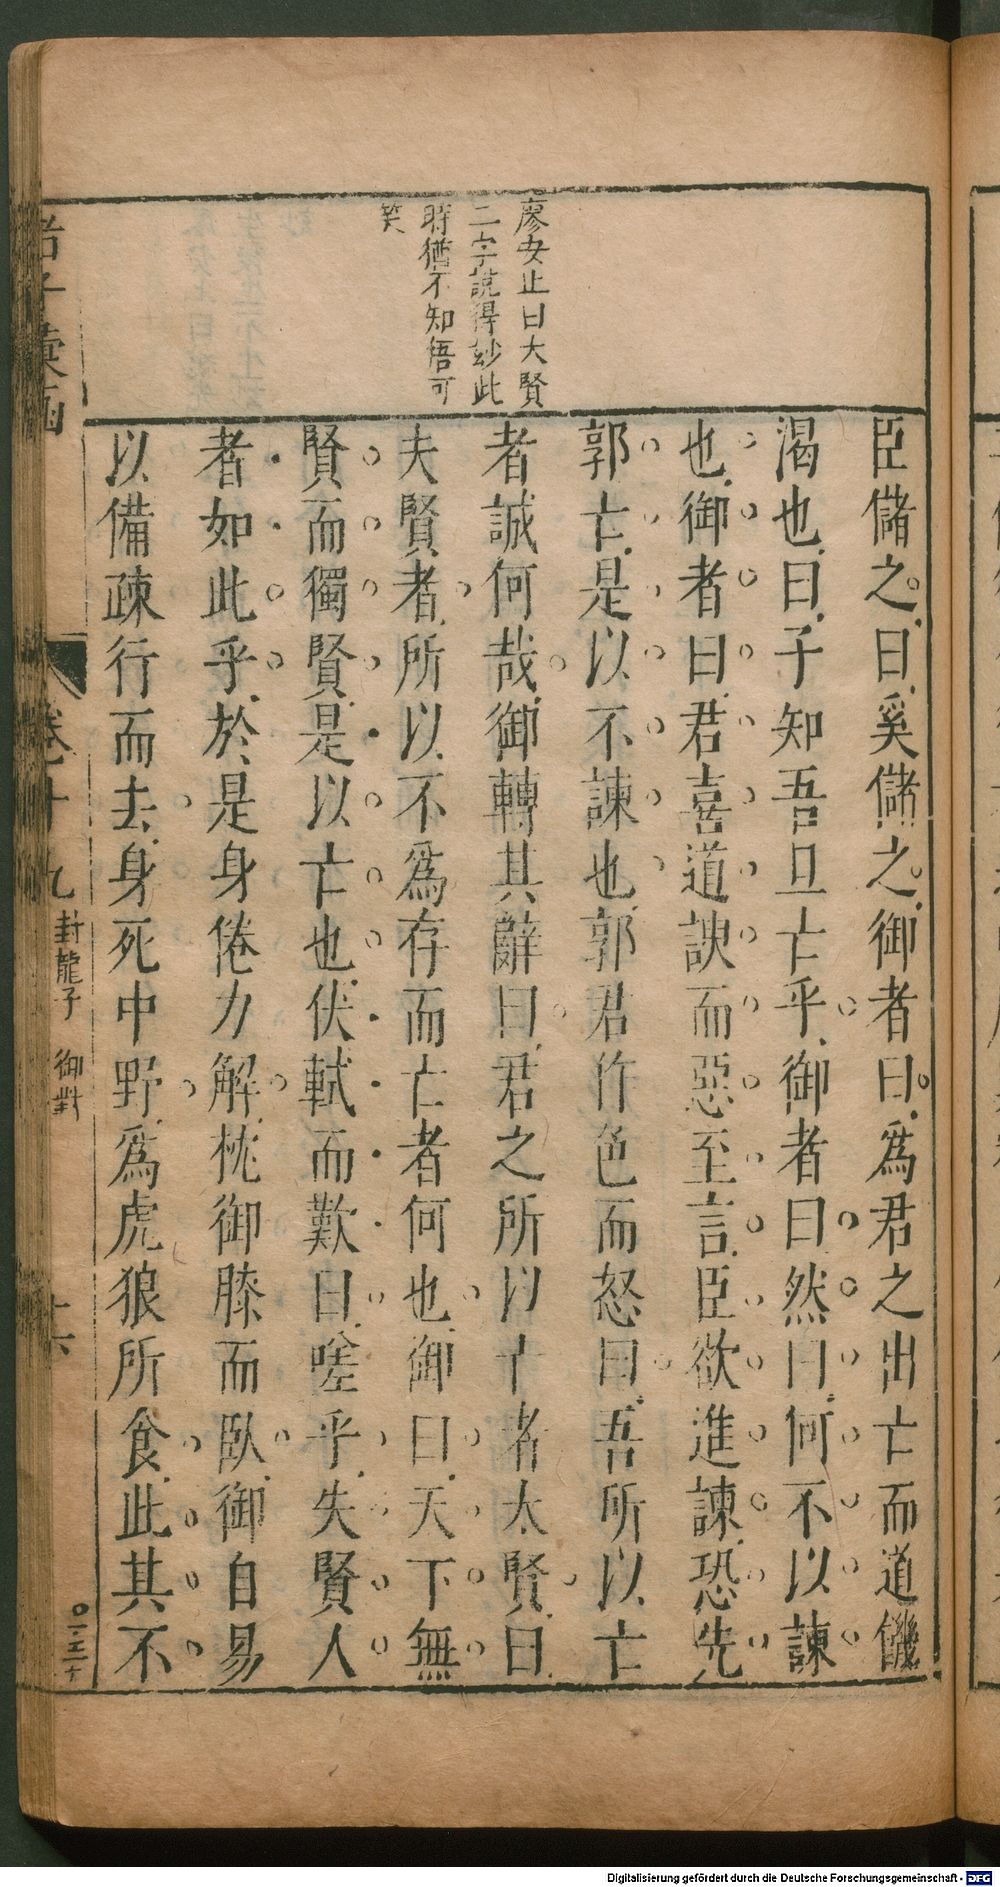 廖文止曰大賢
二字說得妙此
時猶不知悟可
笑
臣儲之曰奚儲之御者曰爲君之出亡而道饑
渴也曰子知吾且亡乎御者曰然曰何不以諫
也御者曰君喜道諛而惡至言臣欲進諫恐先
郭亡是以不諫也郭君作色而怒曰吾所以亡
者誠何哉御轉其辭曰君之所以亡者太賢曰
夫賢者所以不爲存而亡者何也御曰天下無
賢而獨賢是以亡也伏軾而歎曰嗟乎失賢人
者如此乎於是身倦力解枕御膝而臥御自易
以備疎行而去身死中野爲虎狼所食此其不
卷十九
封龍子 御對
十六
Digitalisierung gefördert durch die Deutsche Forschungsgemeinschaft - DFG